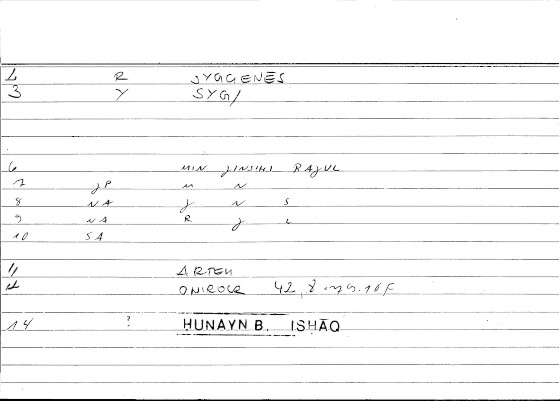 1 R SYGGENĒS
3 Y SYG/
6 MIN JINSIHI RAJUL
7 JP M N
8 NA J N S
9 NA R J L
10 SA
11 ARTEM
12 ONIROCR 42,8
14 ? HUNAYN B. ISHĀQ